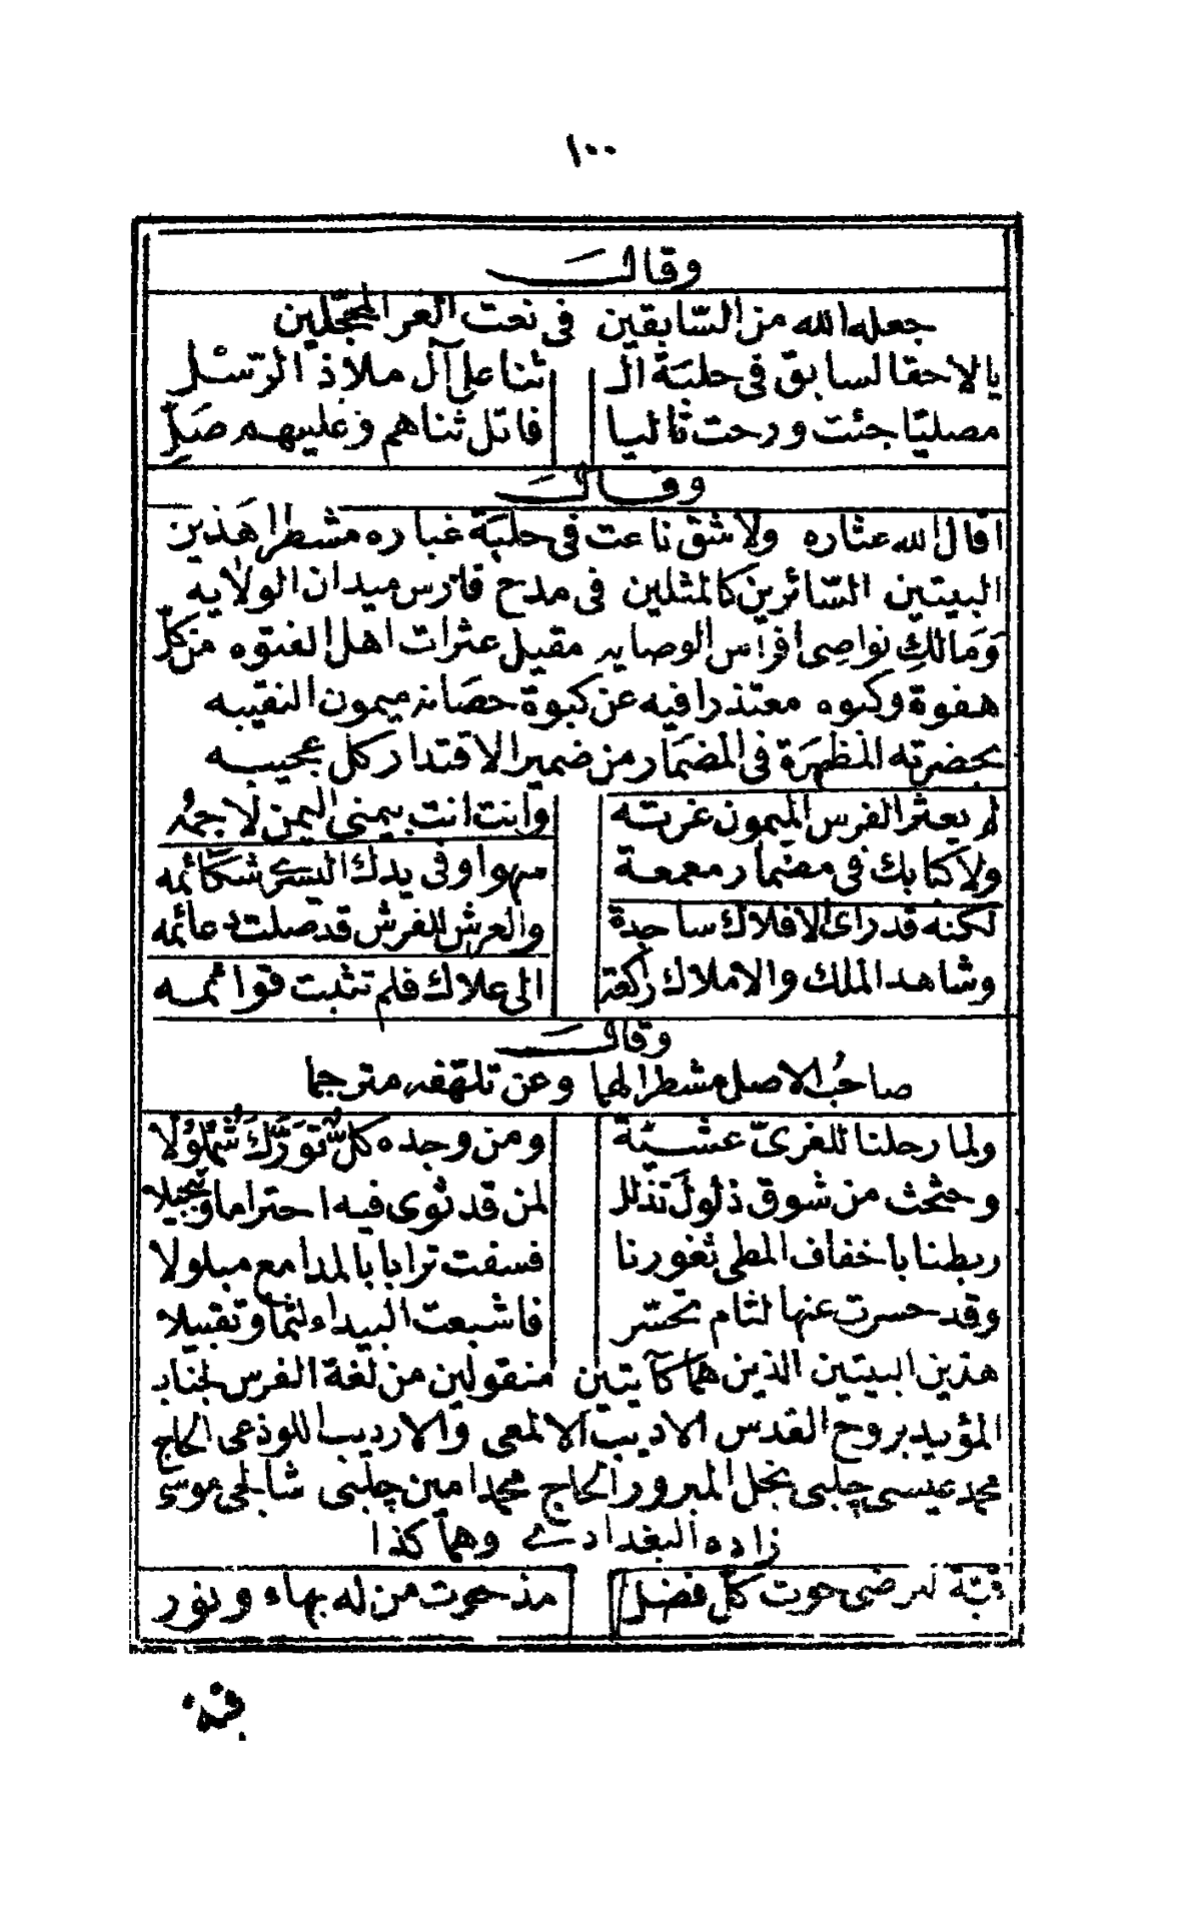 ١٠٠
وقال
جعله الله من السّابقين في نعت الغر المحجّلين
يا لاحقا لسابق في حلبة ال ثنا على آل ملاذ الرّسْل
مصليّا جئت ورحت تاليا فاتل ثناهم وعليهم صَلِّ
وقال
اقال الله عثاره ولا شق ناعت في حلبة غباره مشطرا هذين
البيتين السّائرين كالمثلين في مدح فارس ميدان الولايه
وَمَالكِ نواصِى افراس الوصايه مقيل عثرات اهل الفتوه من كلّ
هفوة وكبوه معتذرا فيه عن كبوة حصانه ميمون النقيبه
بحضرته المظهرة في المضمار من ضمير الاقتدار كل عجيبه
لم يعثر الفرس الميمون غرته وانت انت بيمنى اليمن لاجمُه
ولا كبا بك في مضمار معمعة سهوا وفي يدك اليسرى شكائمه
لكنه قد راى الافلاك ساجدة والعرش للفرش قد صلت دعائمه
وشاهد الملك والاملاك راكعة الى علاك فلم تثبت قوائمه
وقال
صاحبُ الاصل مشطرا لهما وعن تلهّفه مترجما
ولما رحلنا للغرىّ عشيّة ومن وجده كلٌّ تَوَرَّكَ شُملُولا
وحثحث من شوق ذلولَ تذلل لمن قد ثوى فيه احتراما وتبجيلا
ربطنا باخفاف المطى ثغورنا فسفت ترابا بالمدامع مبلولا
وقد حسرت عنها لثام تحسّر فاشبعت البيداء لثما وتقبيلا
هذين البيتين الذين هما كآيتين منقولين من لغة الفرس لجناب
المؤيد بروح القدس الاديب الالمعى والاريب اللوذعى الحاج
محمد عيسى چلبى نجل المبرور الحاج محمد امين چلبى شابلجى موسى
زاده البغدادى وهما كذا
قبّة المرضى حوت كلّ فضل مذ حوت من له بهاء ونور